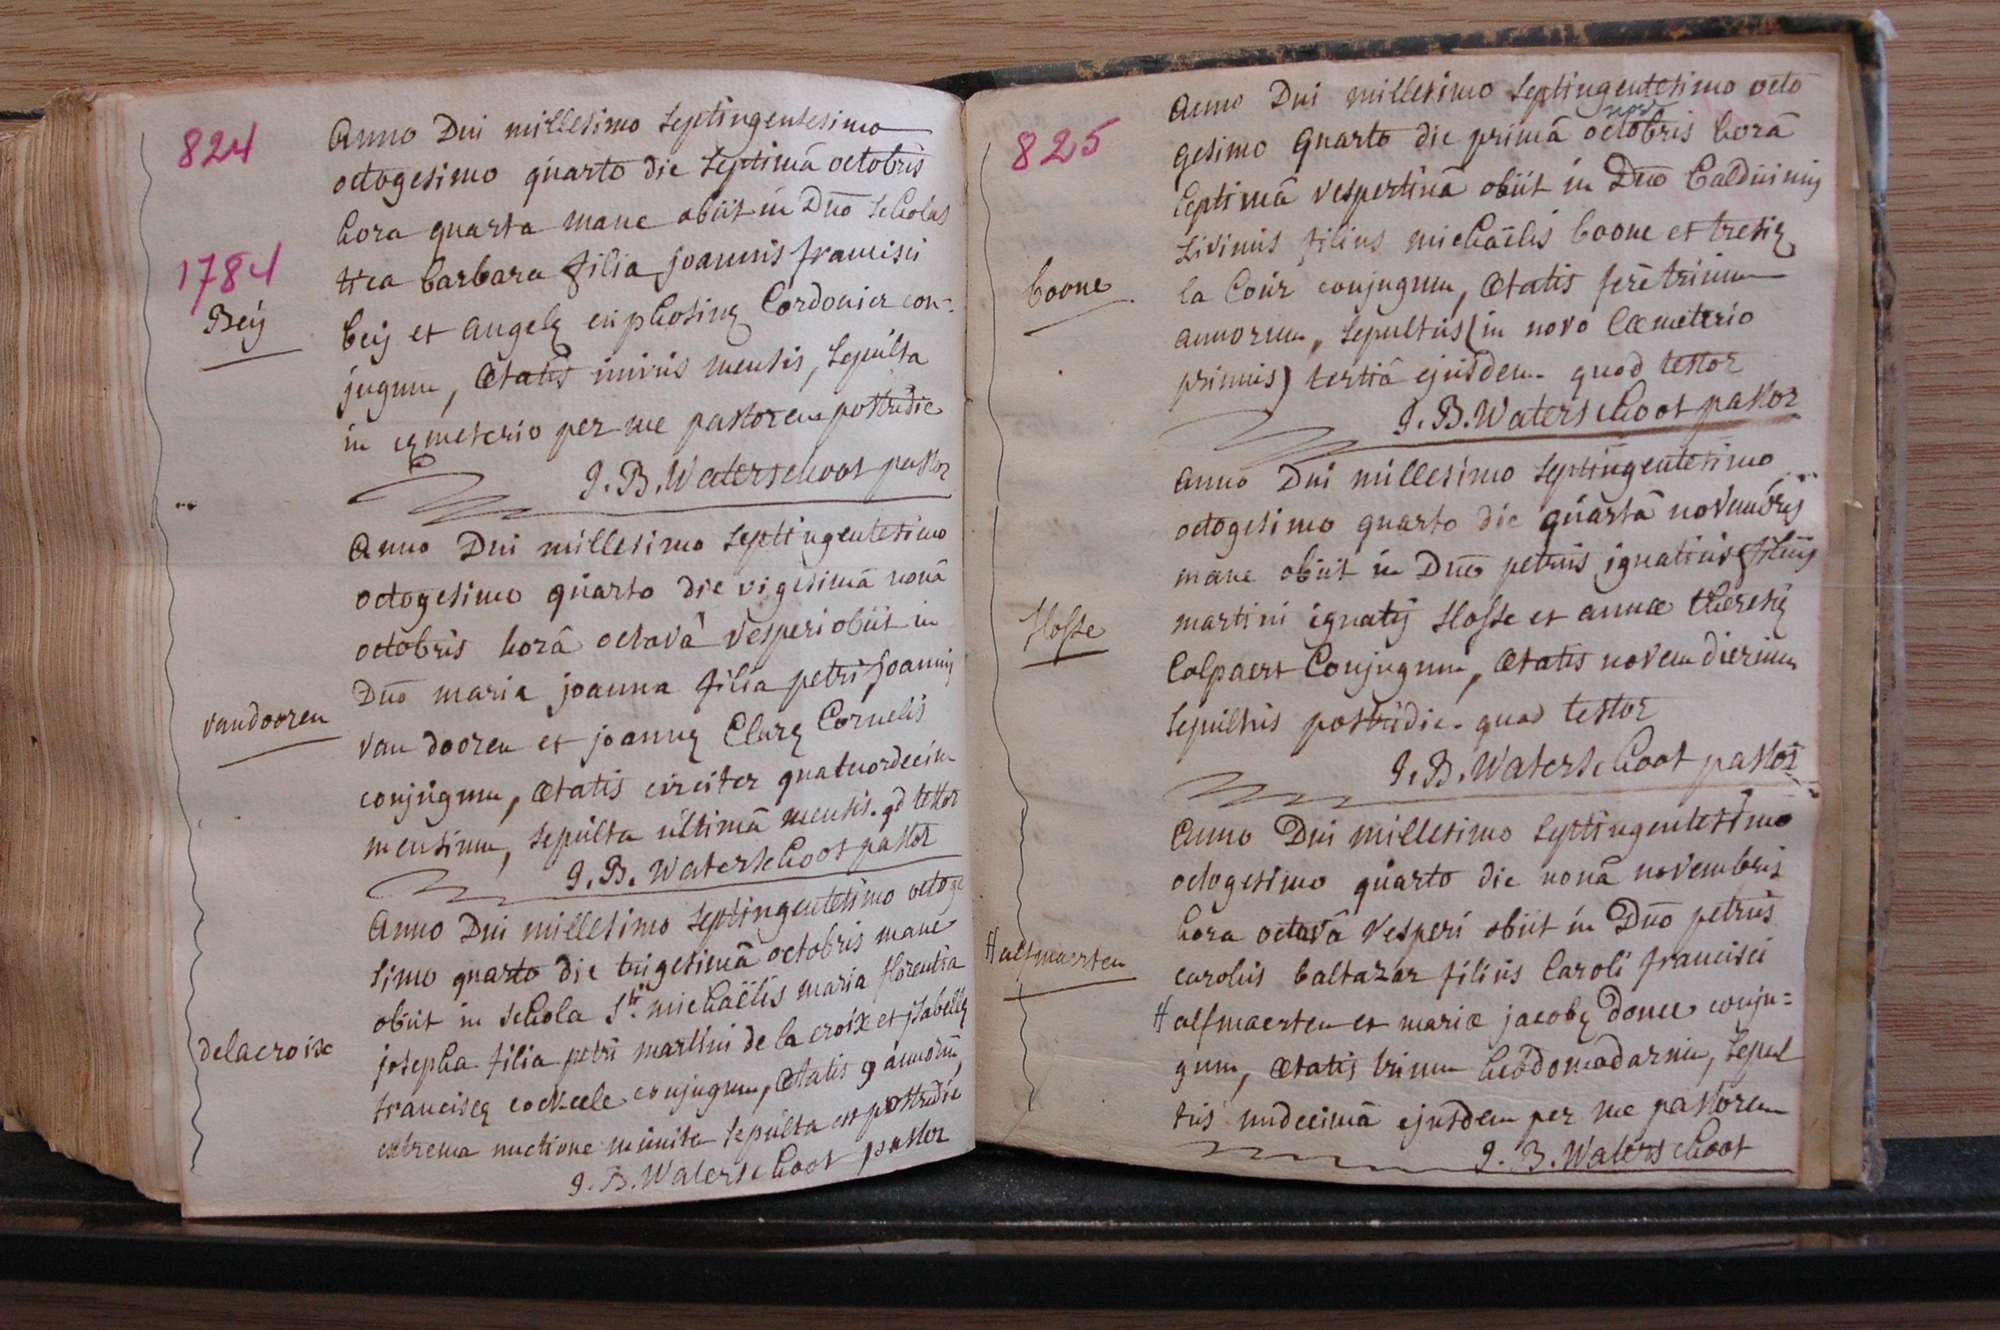 824
Anno Dni millesimo septingentesimo
octogesimo quarto die septimâ octobris
hora quarta mane obiit in Dno scholas
1784
tica barbara filia joannis francisci
Beij
beij et angelę euphosinę Cordonier con-
jugum, ætatis unius mensis, sepulta
in cęmeterio per me pastorem postridie
J. B. Waterschoot pastor
Anno Dni millesimo septingentesimo
octogesimo quarto die vigesimâ nonâ
octobris horâ octavâ vesperi obiit in
Dno maria joanna filia petri joannis
vandooren
van dooren et joannę Clarę Cornelis
conjugum, ætatis circiter quatuordecim
mensium, sepulta ultimâ mensis. qd testor
J. B. Waterschoot pastor
Anno Dni millesimo septingentesimo octoge
simo quarto die trigesimâ octobris mane
obiit in schola Sti michaëlis maria florentia
delacroix
josepha filia petri martini de la croix et jsabellę
franciscę cockeele conjugum, ætatis 9 annorum,
extrema unctione munita sepulta est postridie
J. B. Waterschoot pastor
825
Anno Dni millesimo septingentesimo octo
nov
gesimo quarto die primâ octobris horâ
septimâ vespertinâ obiit in Dno balduinus
Livinus filius michaëlis boone et tresię
boone
la Cour conjugum, ætatis ferè trium
annorum, sepultus (in novo Cæmeterio
primus) tertiâ ejusdem. quod testor
J. B. Waterschoot pastor
Anno Dni millesimo septingentesimo
octogesimo quarto die quartâ novembris
mane obiit in Dno petrus ignatius filius
Hosse
martini ignatij Hosse et annæ theresię
Colpaert Conjugum, ætatis novem dierum
sepultus postridie. quod testor
J. B. Waterschoot pastor
Anno Dni millesimo septingentesimo
octogesimo quarto die nonâ novembris
hora octavâ vesperi obiit in Dno petrus
Halfmaerten
carolus baltazar filius Caroli francisci
Halfmaerten et mariæ jacobę Donee conju=
gum, ætatis trium hebdomadarum, sepul
tus undecimâ ejusdem per me pastorem
J. B. Waterschoot